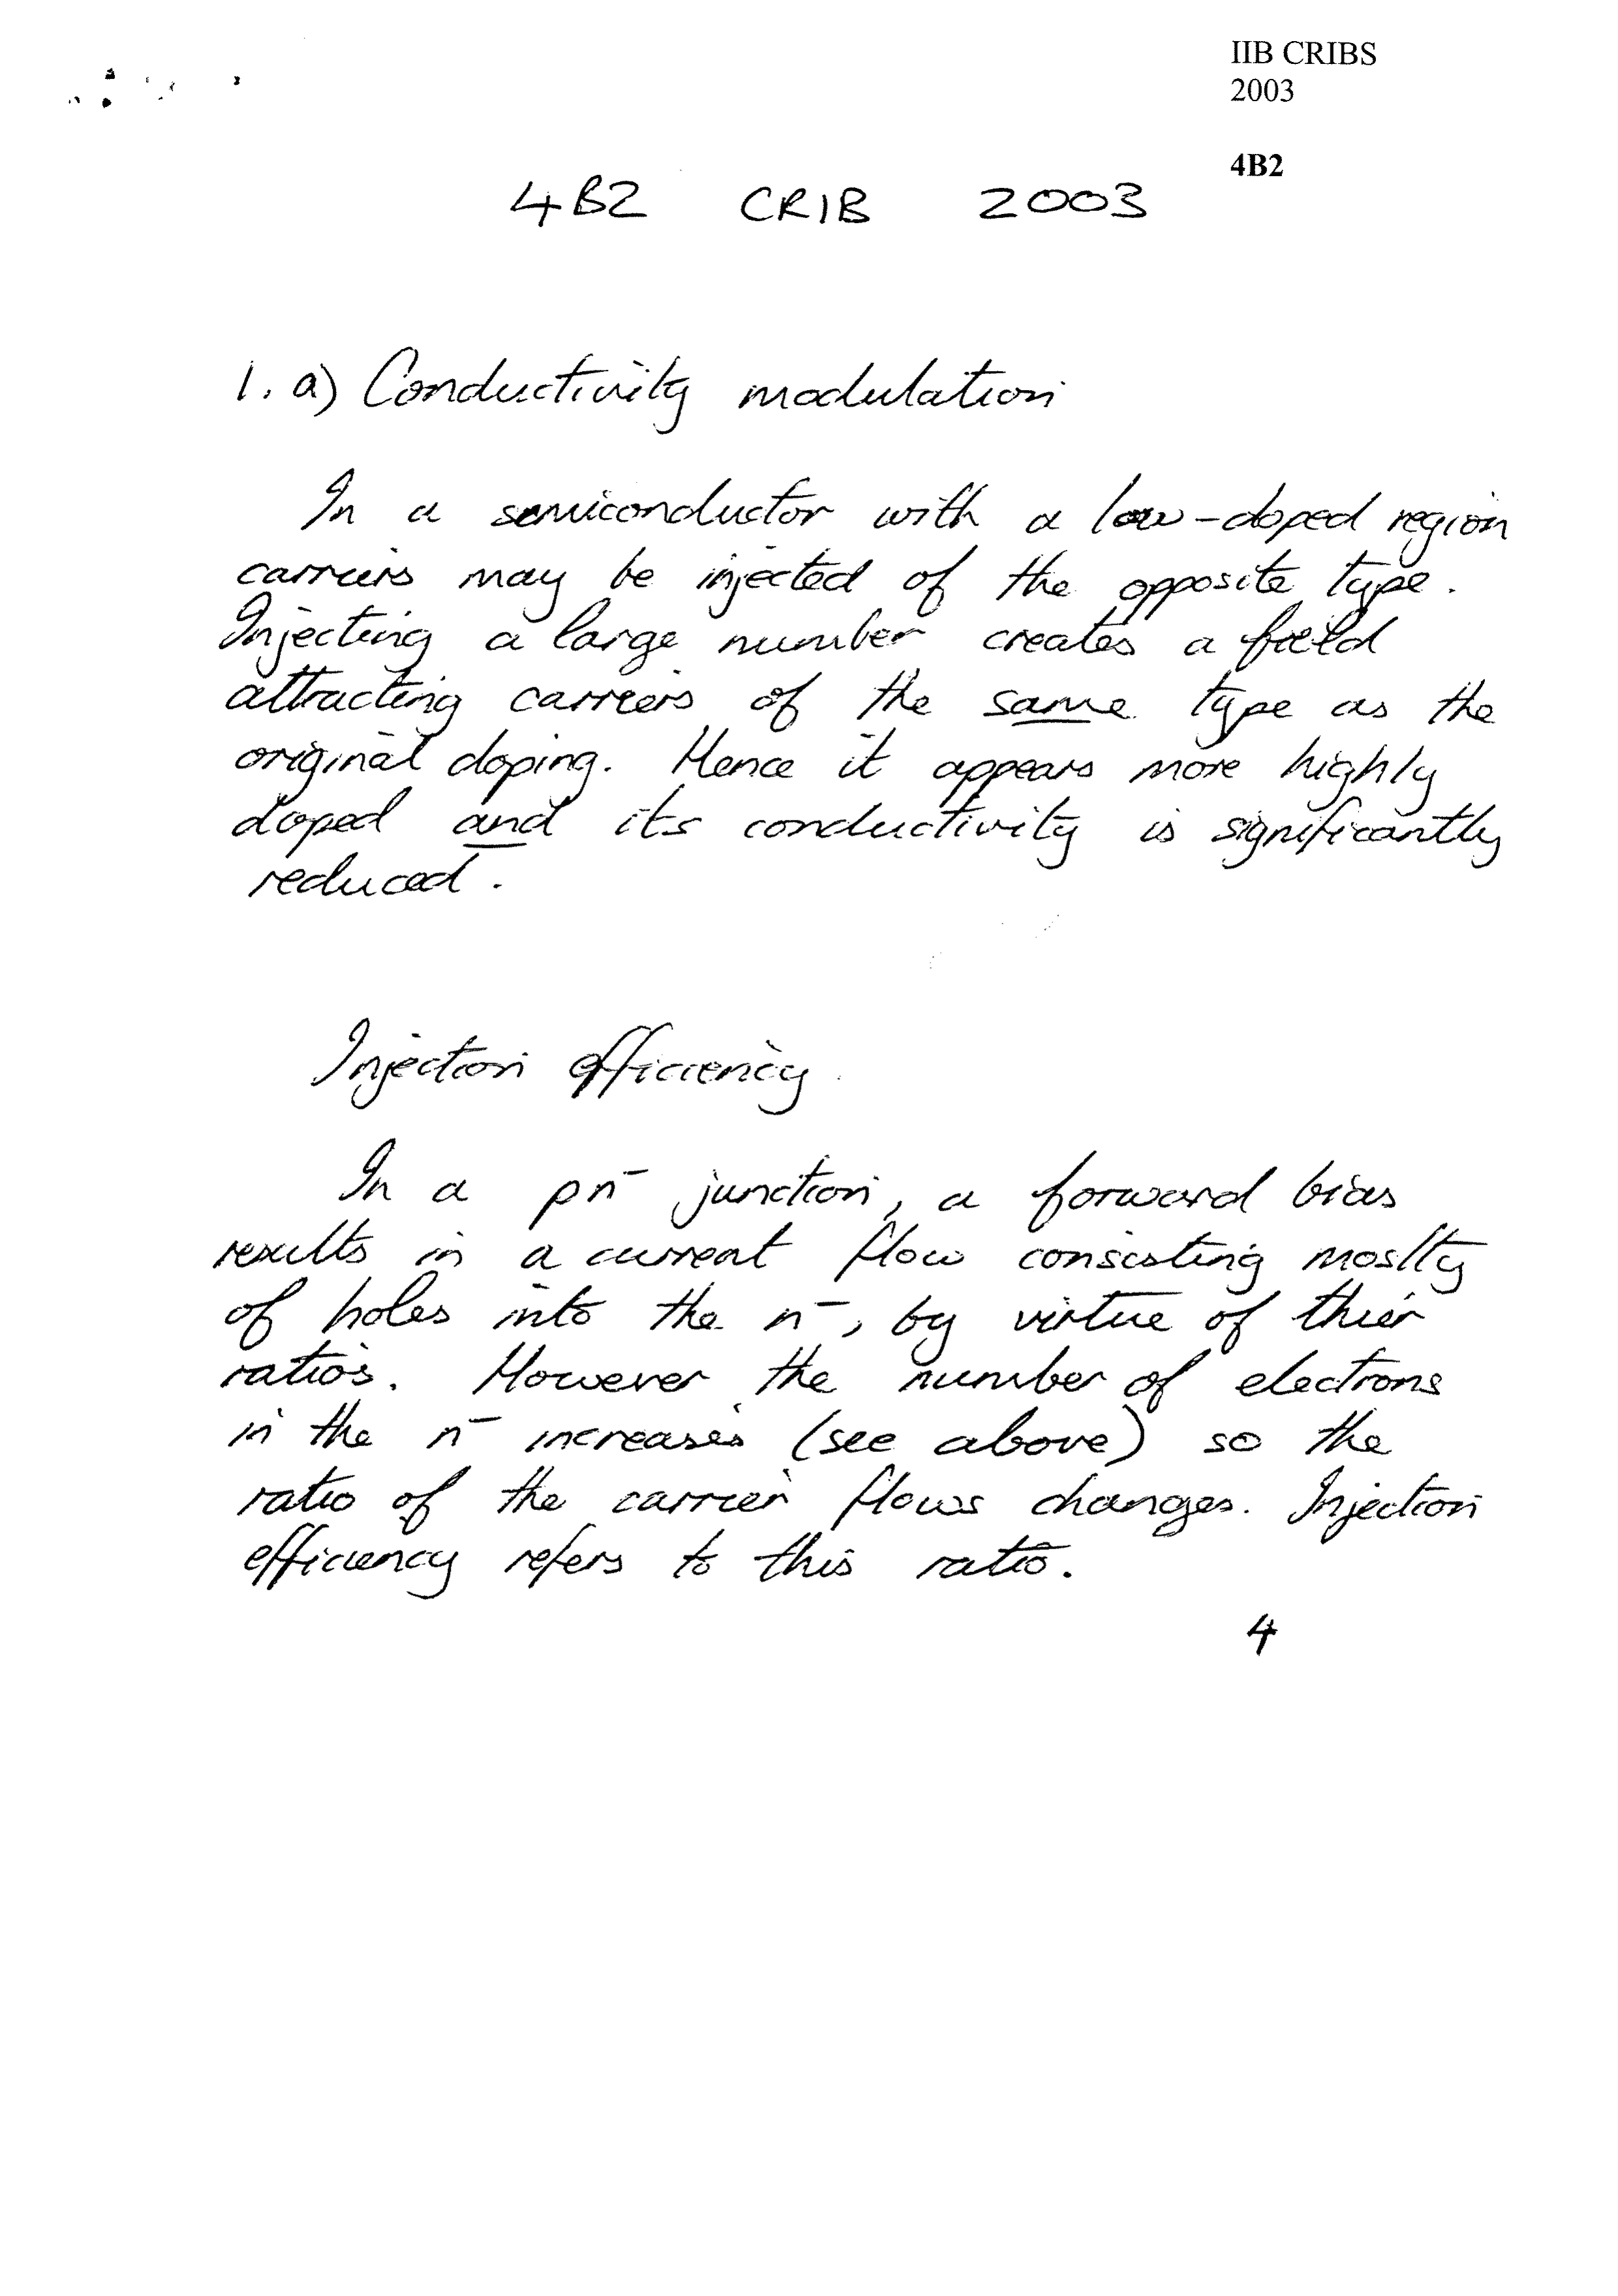 IIB CRIBS
2003
4B2
4B2 CRIB 2003
1. a) Conductivity modulation
In a semiconductor with a low-doped region
carriers may be injected of the opposite type.
Injecting a large number creates a field
attracting carriers of the same type as the
original doping. Hence it appears more highly
doped and its conductivity is significantly
reduced.
Injection efficiency
In a pn⁻ junction, a forward bias
results in a current flow consisting moslty
of holes into the n⁻, by virtue of thier
ratios. However the number of electrons
in the n⁻ increases (see above) so the
ratio of the carrier flows changes. Injection
efficiency refers to this ratio.
4